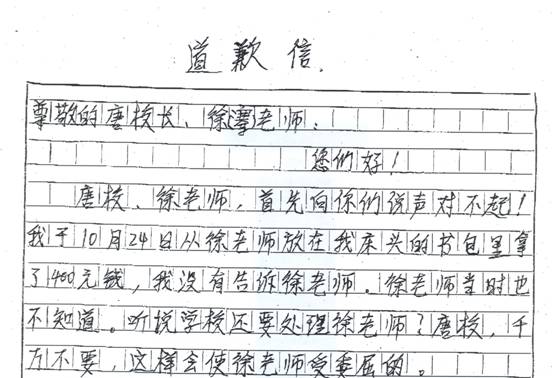 道歉信.
尊敬的唐校长、徐泽老师：
您们好！
唐校、徐老师，首先向你们说声对不起！
我于10月24日从徐老师放在我床头的书包里拿
了400元钱，我没有告诉徐老师。徐老师当时也
不知道。听说学校还要处理徐老师？唐校，千
万不要，这样会使徐老师受委屈的。